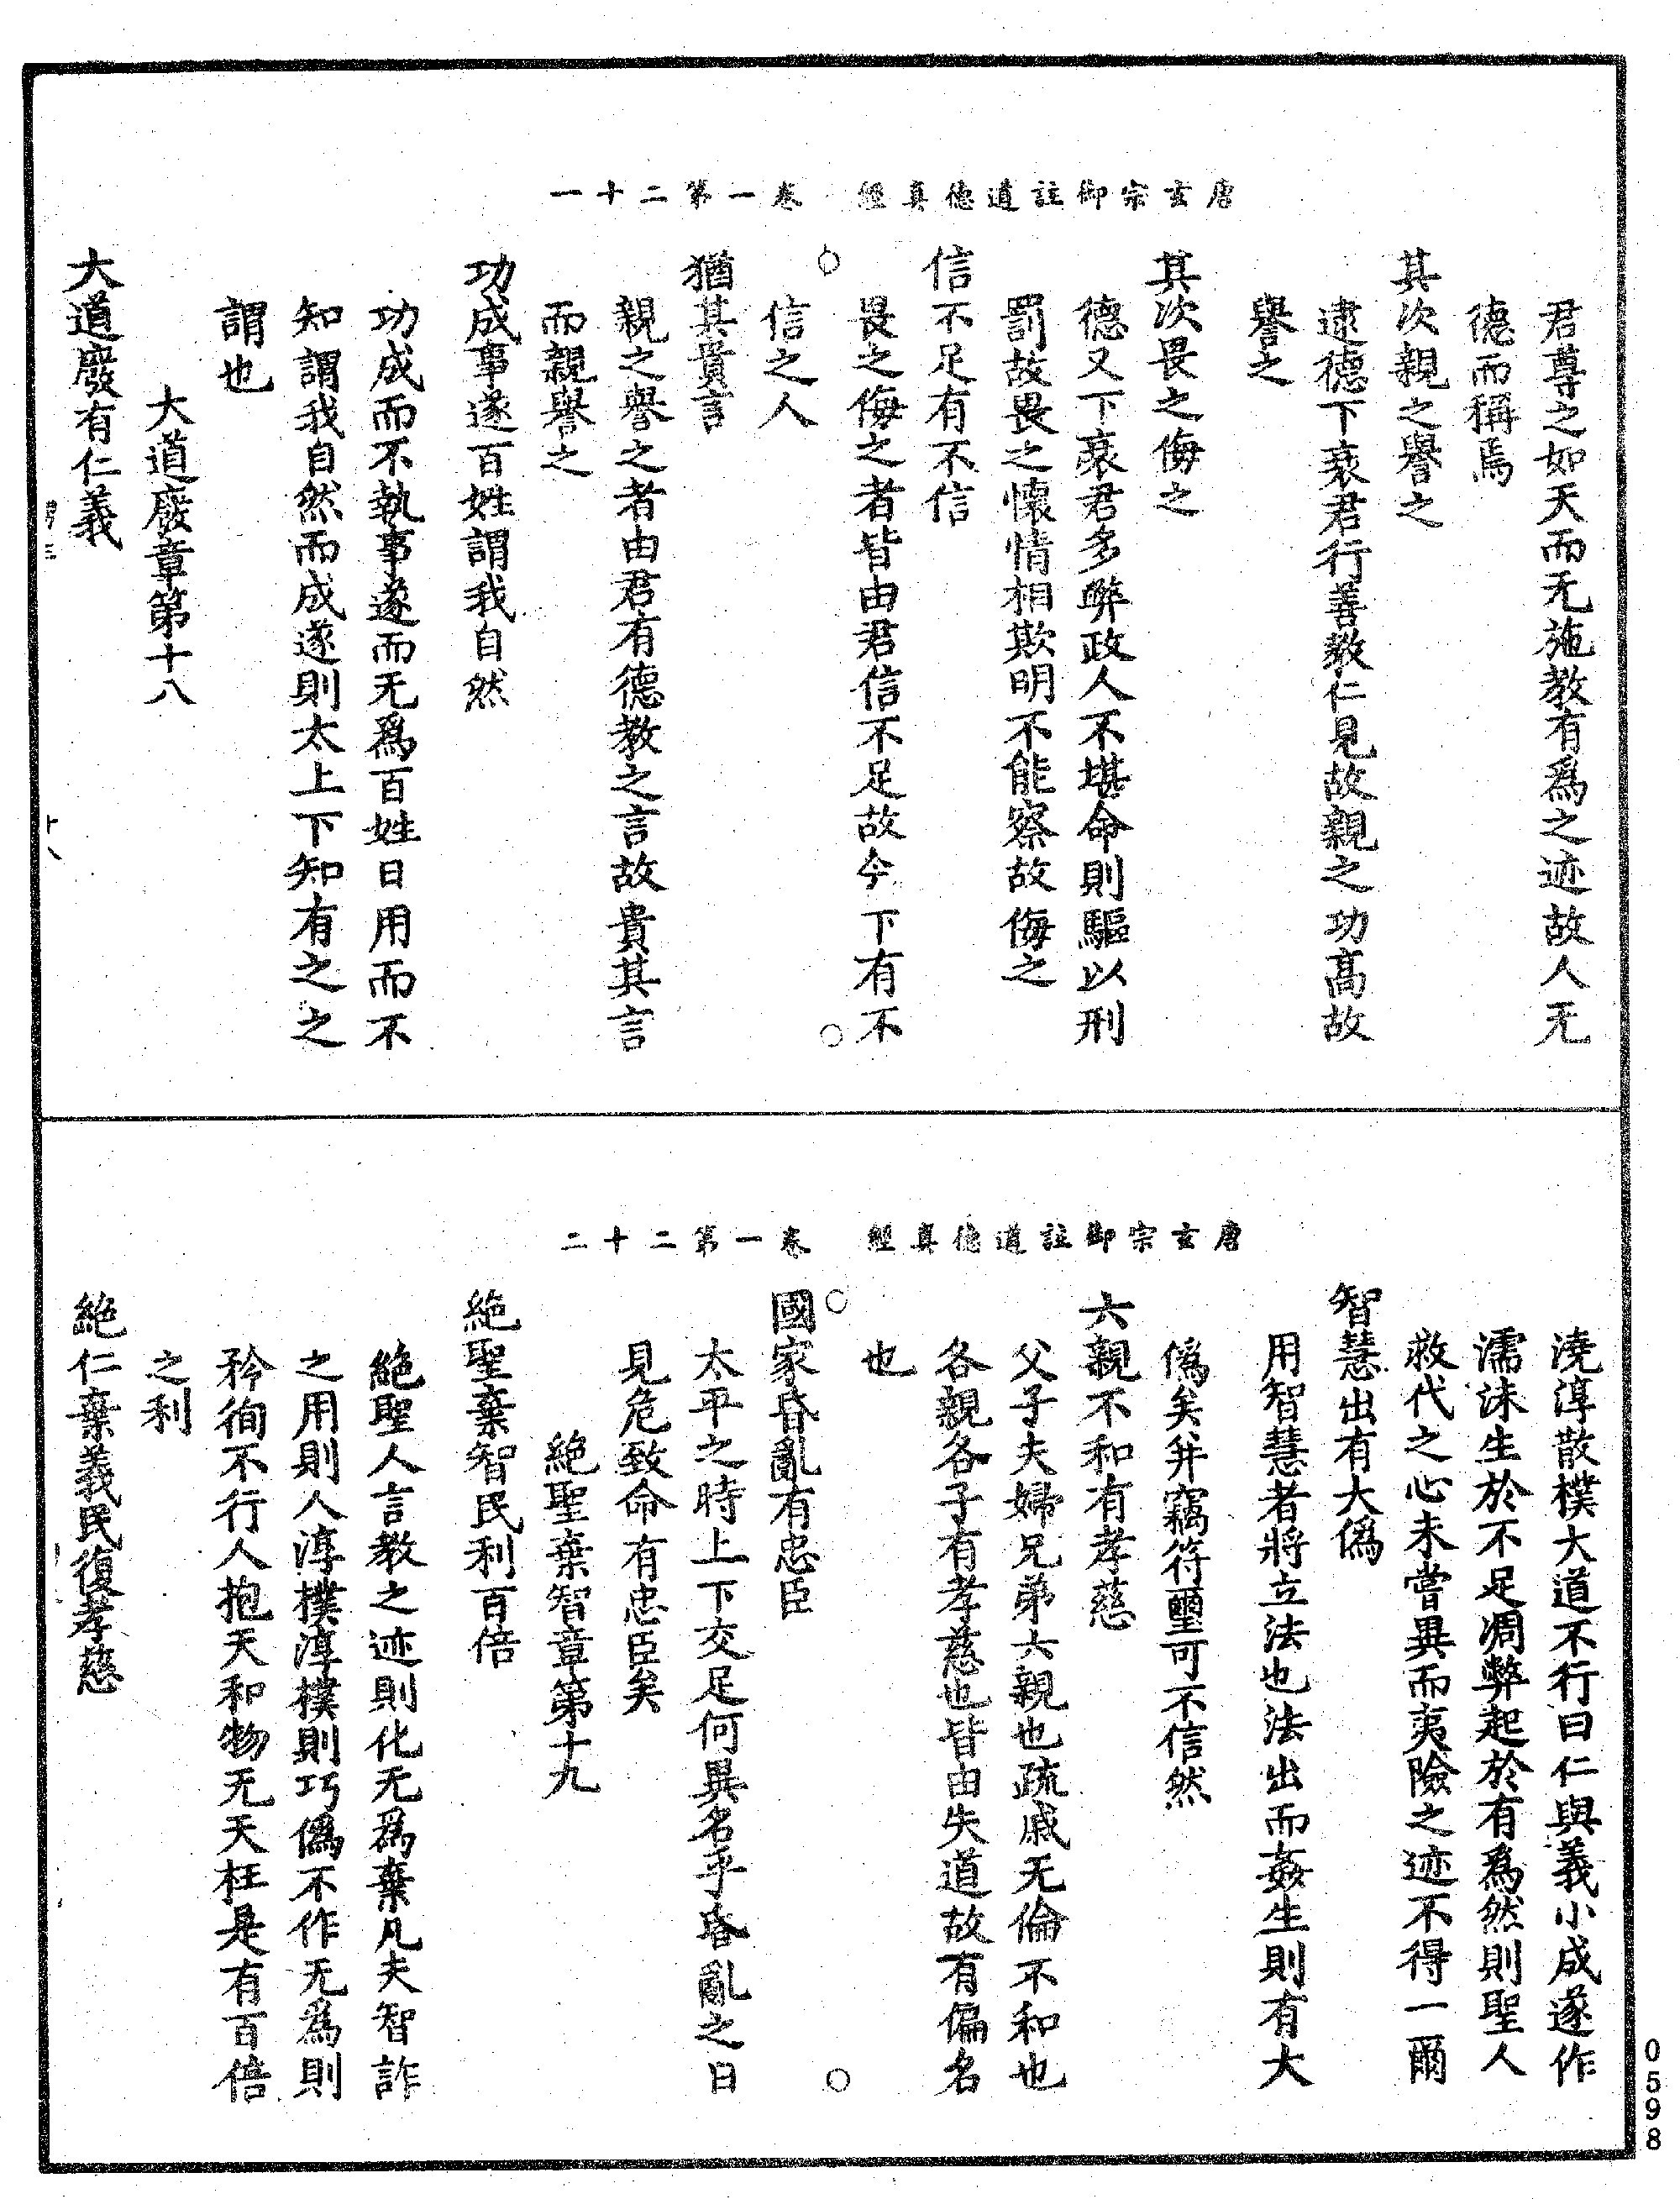 唐玄宗御註道德真經　卷一第二十一
君尊之如天而无施教有爲之迹故人无
德而稱焉
其次親之譽之
逮德下衰君行善教仁見故親之功高故
譽之
其次畏之侮之
德又下衰君多弊政人不堪命則驅以刑
罰故畏之懷情相欺明不能察故侮之
信不足有不信
畏之侮之者皆由君信不足故今下有不
信之人
猶其貴言
親之譽之者由君有德教之言故貴其言
而親譽之
功成事遂百姓謂我自然
功成而不執事遂而无爲百姓日用而不
知謂我自然而成遂則太上下知有之之
謂也
大道廢章第十八
大道廢有仁義
十八
唐玄宗御註道德真經　卷一第二十二
澆淳散樸大道不行曰仁與義小成遂作
濡沫生於不足凋弊起於有爲然則聖人
救代之心未嘗異而夷險之迹不得一爾
智慧出有大僞
用智慧者將立法也法出而姦生則有大
僞矣并竊符璽可不信然
六親不和有孝慈
父子夫婦兄弟六親也疏戚无倫不和也
各親各子有孝慈也皆由失道故有偏名
也
國家昏亂有忠臣
太平之時上下交足何異名乎昏亂之日
見危致命有忠臣矣
絶聖棄智章第十九
絶聖棄智民利百倍
絶聖人言教之迹則化无爲棄凡夫智詐
之用則人淳樸淳樸則巧僞不作无爲則
矜徇不行人抱天和物无夭枉是有百倍
之利
絶仁棄義民復孝慈
0598